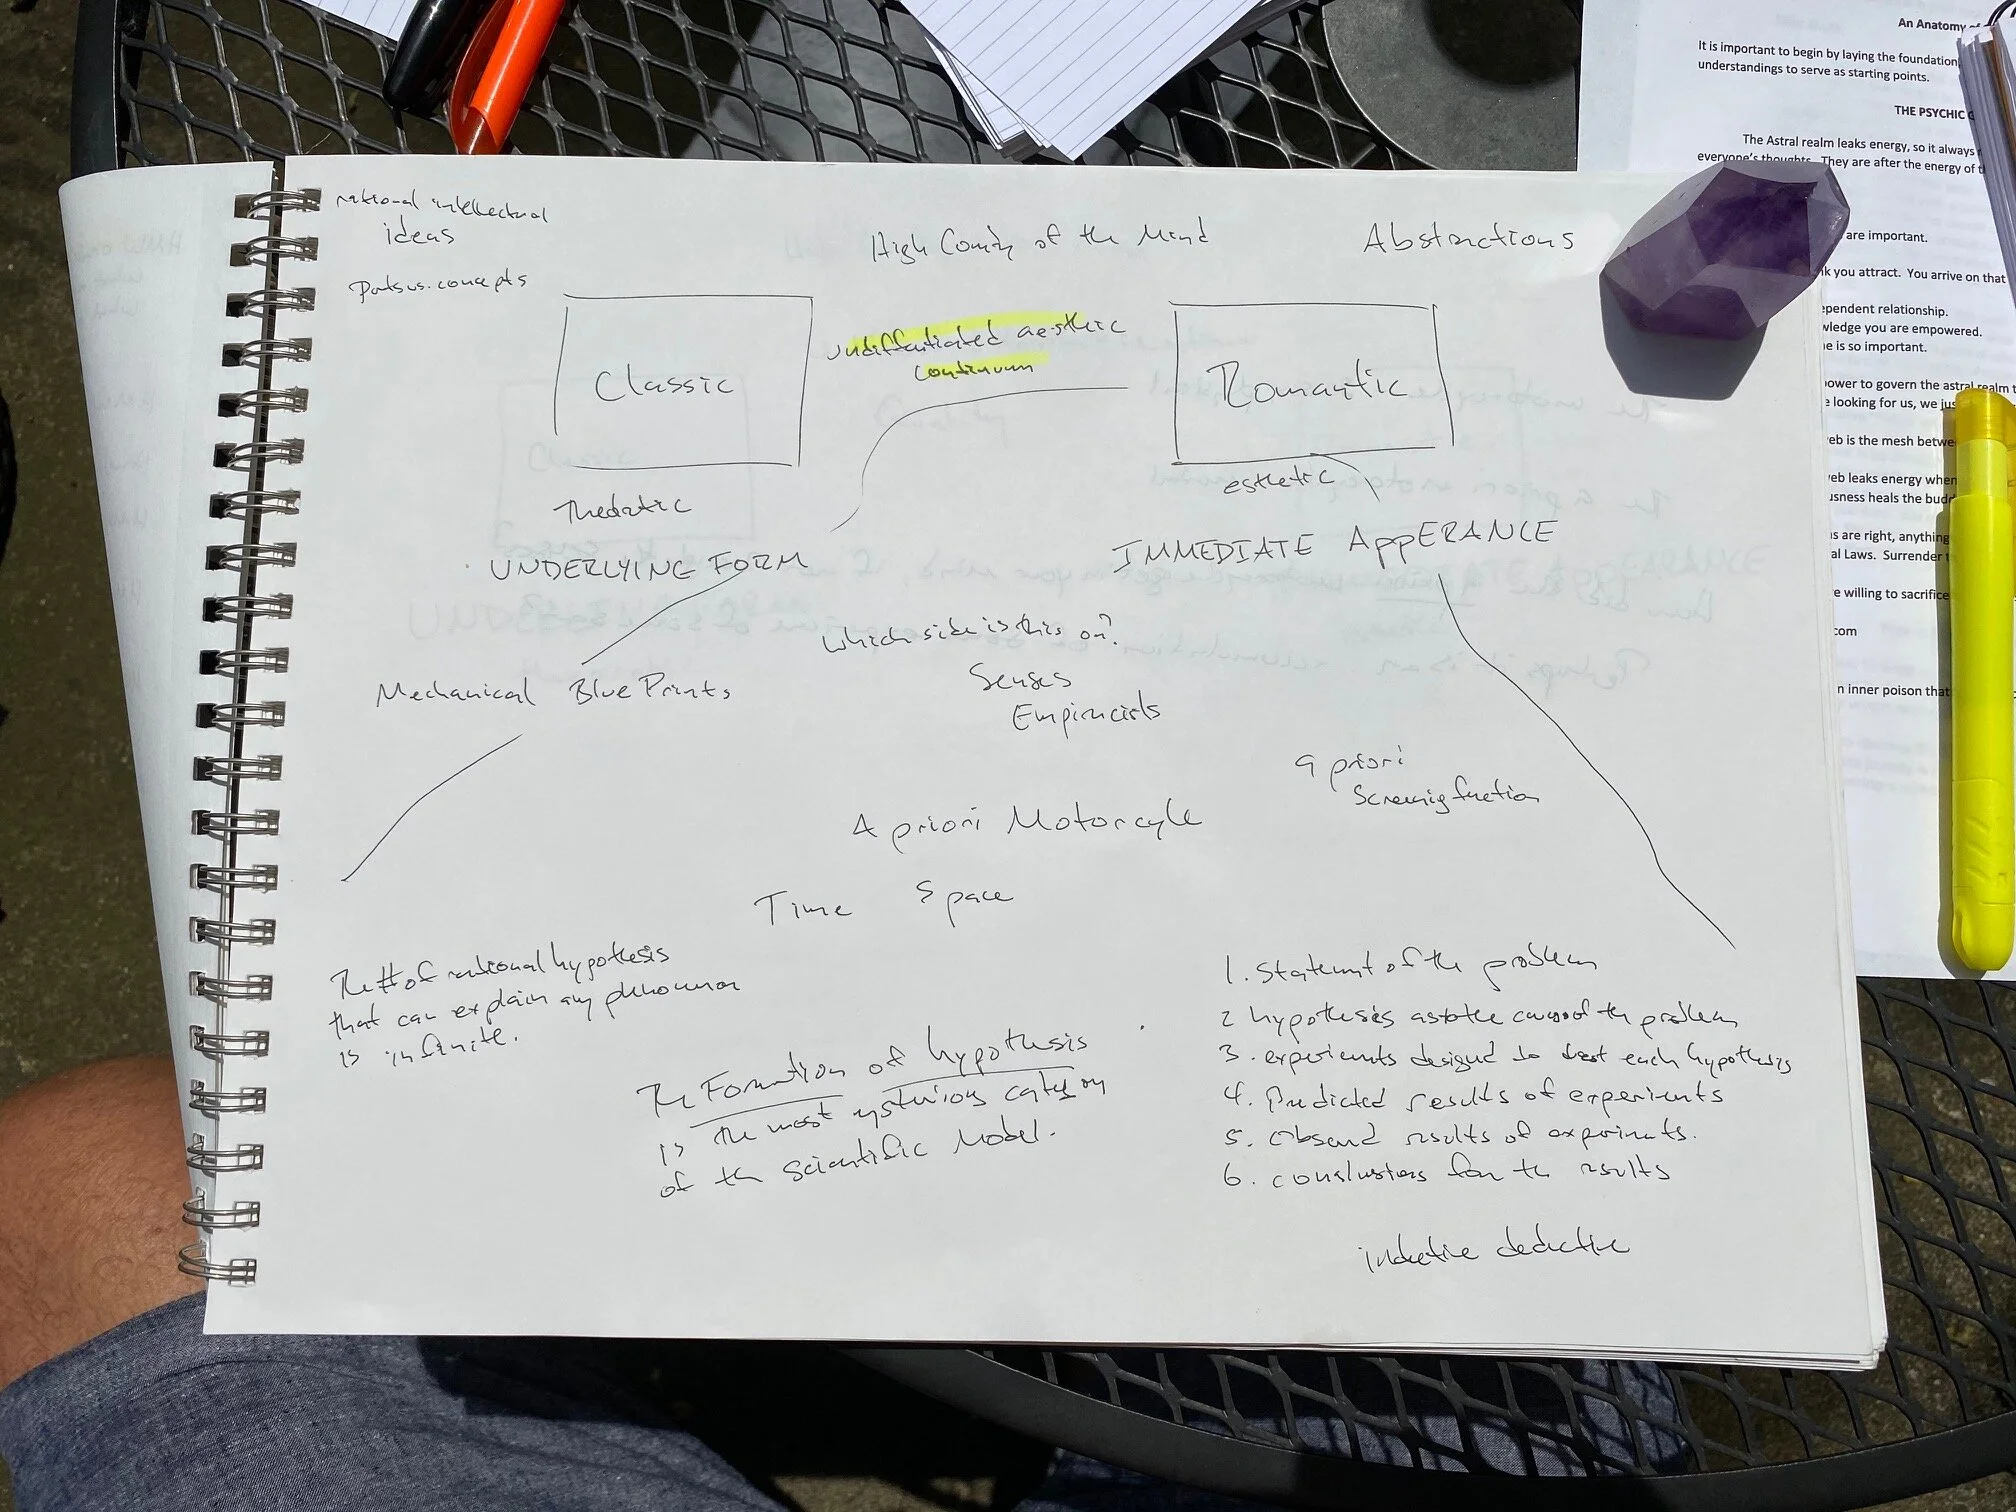 rational intellectual
ideas
High County of the Mind
Abstractions
Parts vs. concepts
Classic
undiffentiated aesthetic
continuum
Romantic
Thedatic
esthetic
UNDERLYING FORM
IMMEDIATE AppERANCE
which side is this on?
Senses
Empiricists
Mechanical Blue Prints
a priori
Screenig function
A priori Motorcycle
Time Space
The # of rational hypothesis
that can explain any phenomenon
is infinite.
The Formation of hypothesis
is the most mysterious category
of the scientific Model.
1. Statement of the problem
2 hypothesis as to the cause of the problem
3. experiments designed to test each hypothesis
4. Predicted results of experiments
5. observed results of experiments.
6. conslusions from the results
inductive deductive
An Anatomy
It is important to begin by laying the foundation
understandings to serve as starting points.
THE PSYCHIC
The Astral realm leaks energy, so it always
everyone's thoughts. They are after the energy of
are important.
you attract. You arrive on that
relationship.
you are empowered.
is so important.
power to govern the astral realm
looking for us, we
is the mesh
leaks energy when
heals the
are right, anything
Laws. Surrender
willing to sacrifice
com
inner poison that